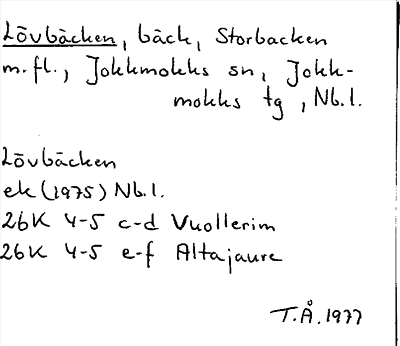 Lövbäcken, bäck, Storbacken
m.fl., Jokkmokks sn, Jokk-
mokks tg, Nb.l.
Lövbäcken
ek (1975) Nb.l.
26K 4-5 c-d Vuollerim
26K 4-5 e-f Altajaure
T.Å. 1977